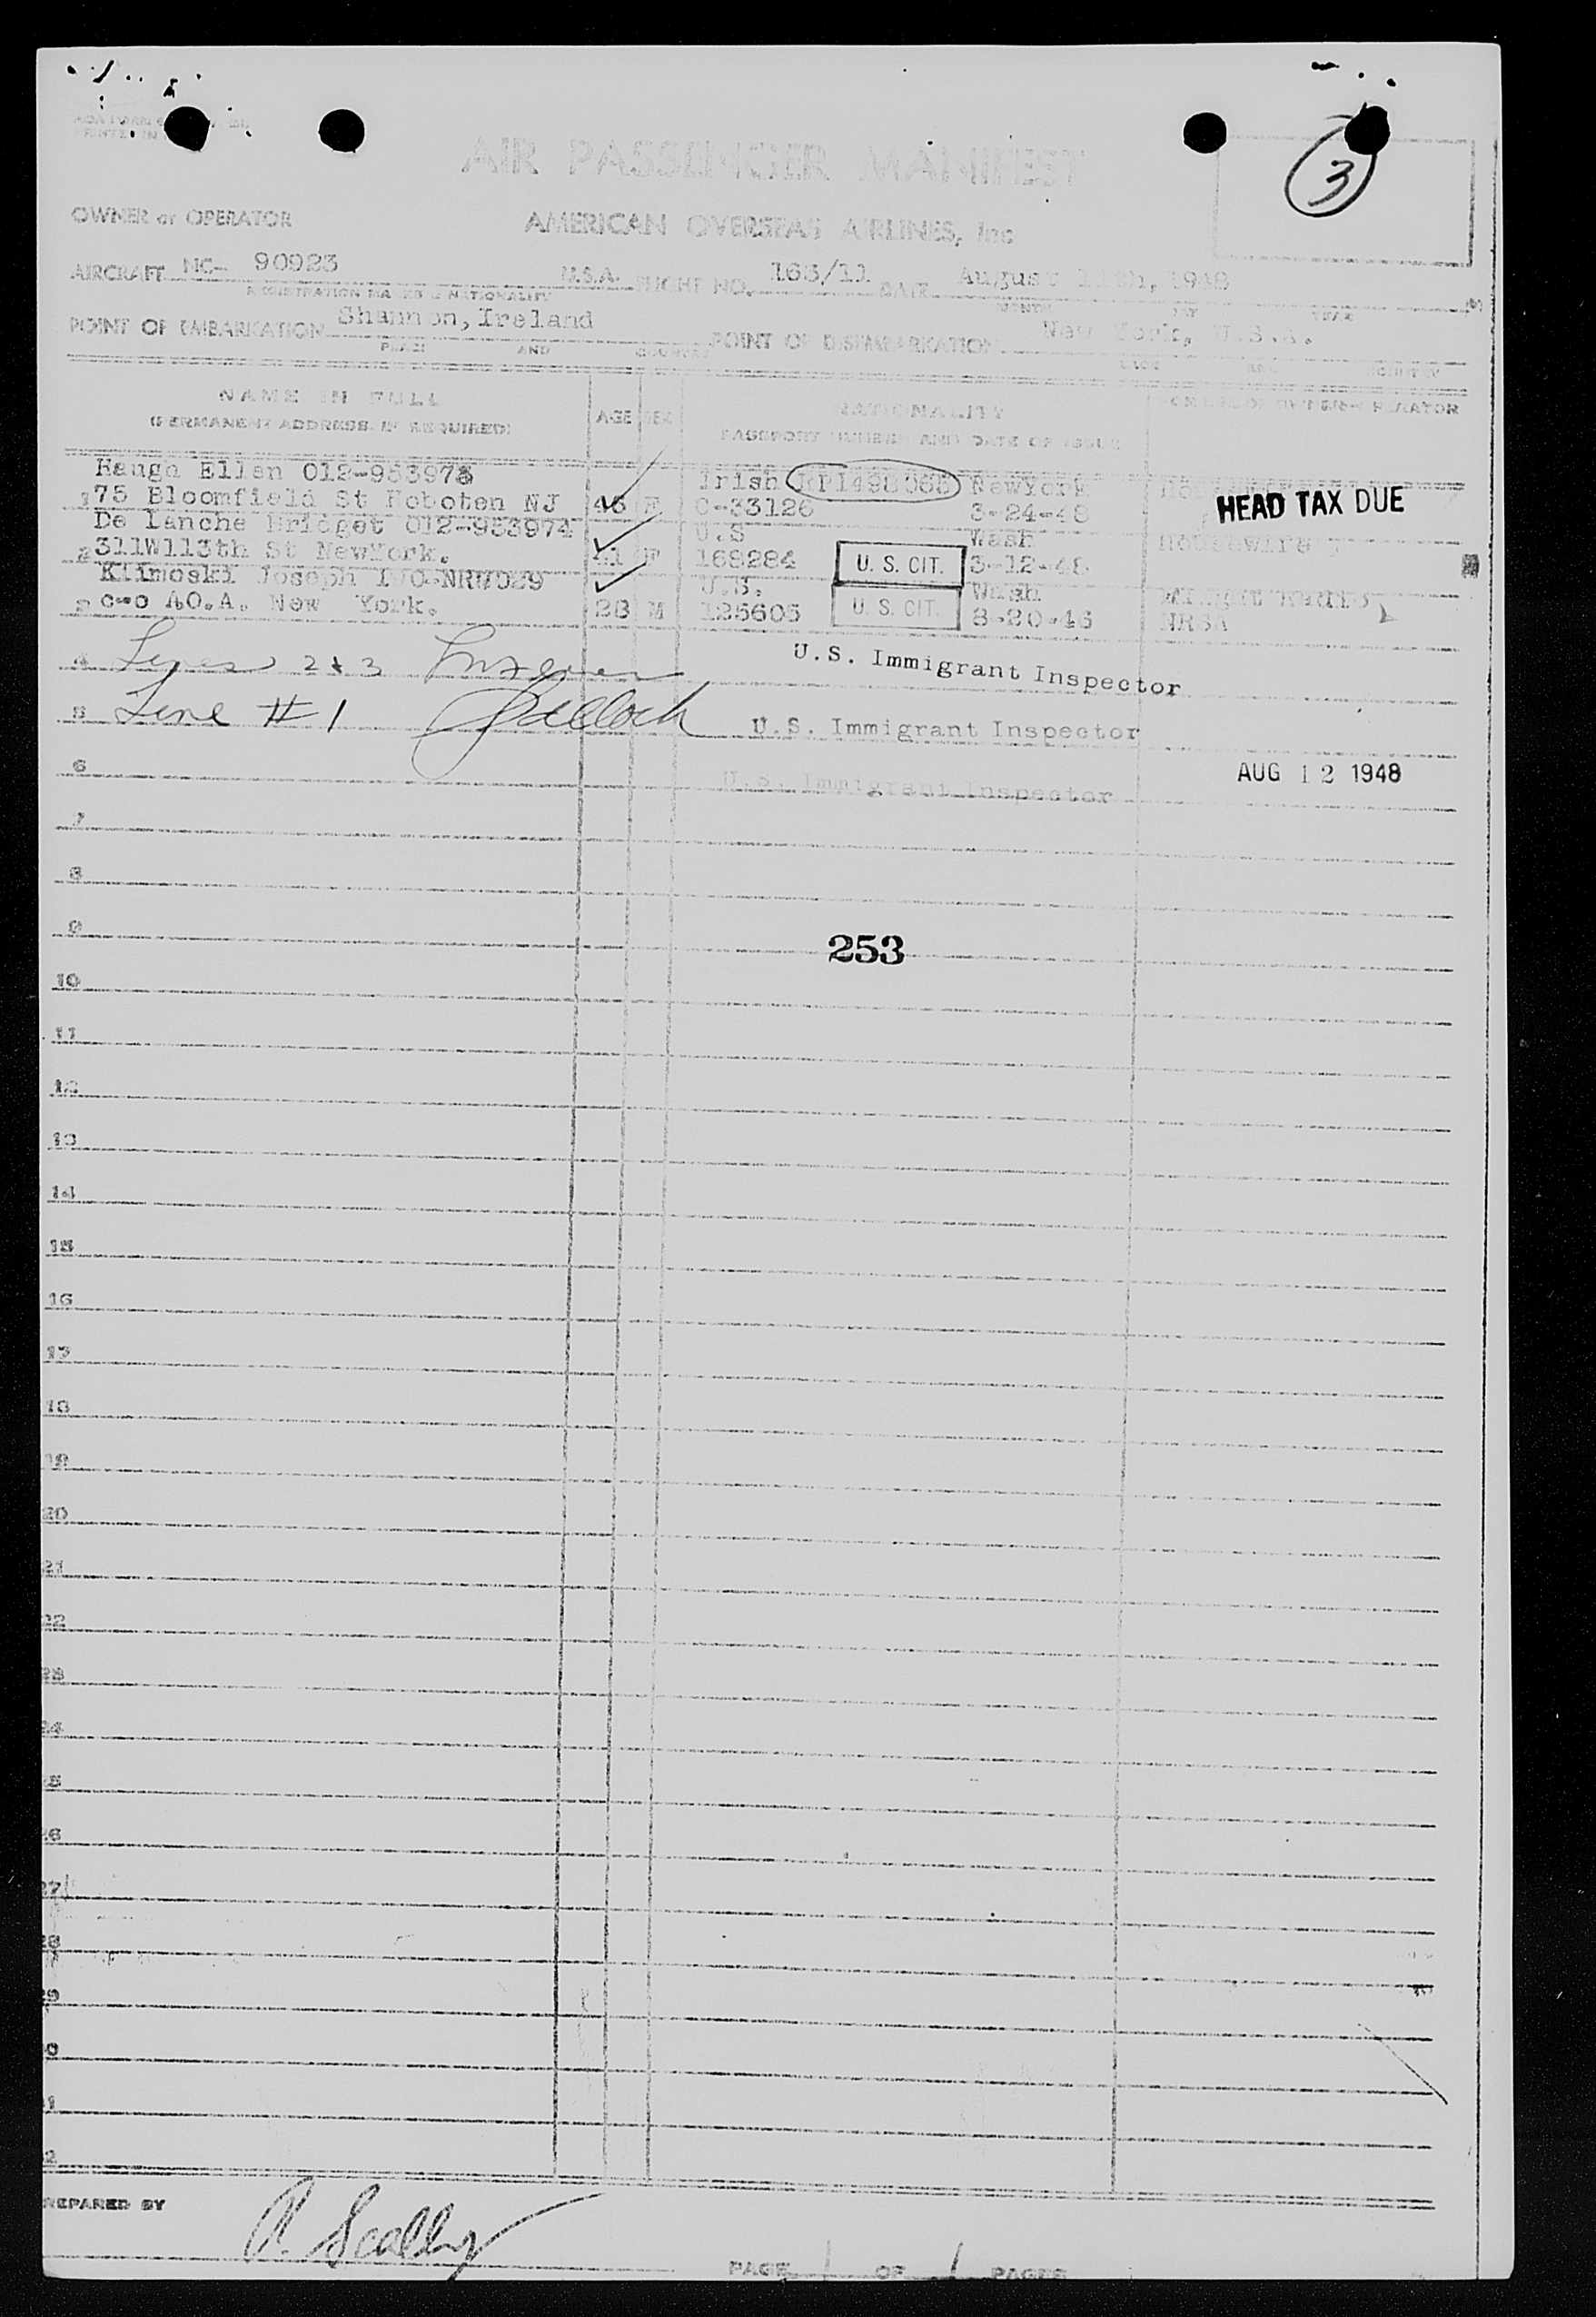 3
AIR PASSENGER MANIFEST
OWNER or OPERATOR AMERICAN OVERSEAS AIRLINES, Inc
AIRCRAFT NC- 90923 U.S.A. FLIGHT NO. 163/11 DATE August 1948
REGISTRATION MARKS & NATIONALITY MONTH DAY YEAR
POINT OF EMBARKATION Shannon, Ireland POINT OF DISEMBARKATION New York, U.S.A.
PLACE AND COUNTRY PLACE AND COUNTRY
NAME IN FULL AGE SEX NATIONALITY
(PERMANENT ADDRESS IF REQUIRED) PASSPORT NUMBER AND DATE OF ISSUE
Ellen 012-953973 Irish NewYork
1 75 Bloomfield St Hoboten NJ 45 F C-33126 3-24-48 HEAD TAX DUE
De Lanche Bridget 012-953974 U.S Wash
2 311W113th St NewYork. F 168284 U. S. CIT. 3-12-48 Housewife
Klimoski Joseph U.S. Wash
3 c-o AO.A. New York. 28 M 125605 U. S. CIT. 8-20-46 NRSA
4 Lines 2 & 3 U.S. Immigrant Inspector
5 Line # 1 U.S. Immigrant Inspector
6 U.S. Immigrant Inspector AUG 12 1948
7
8
9 253
10
11
12
13
14
15
16
17
18
19
20
21
22
23
24
25
26
27
28
29
0
1
2
REPARED BY
R. Scally
PAGE 1 OF 1 PAGES